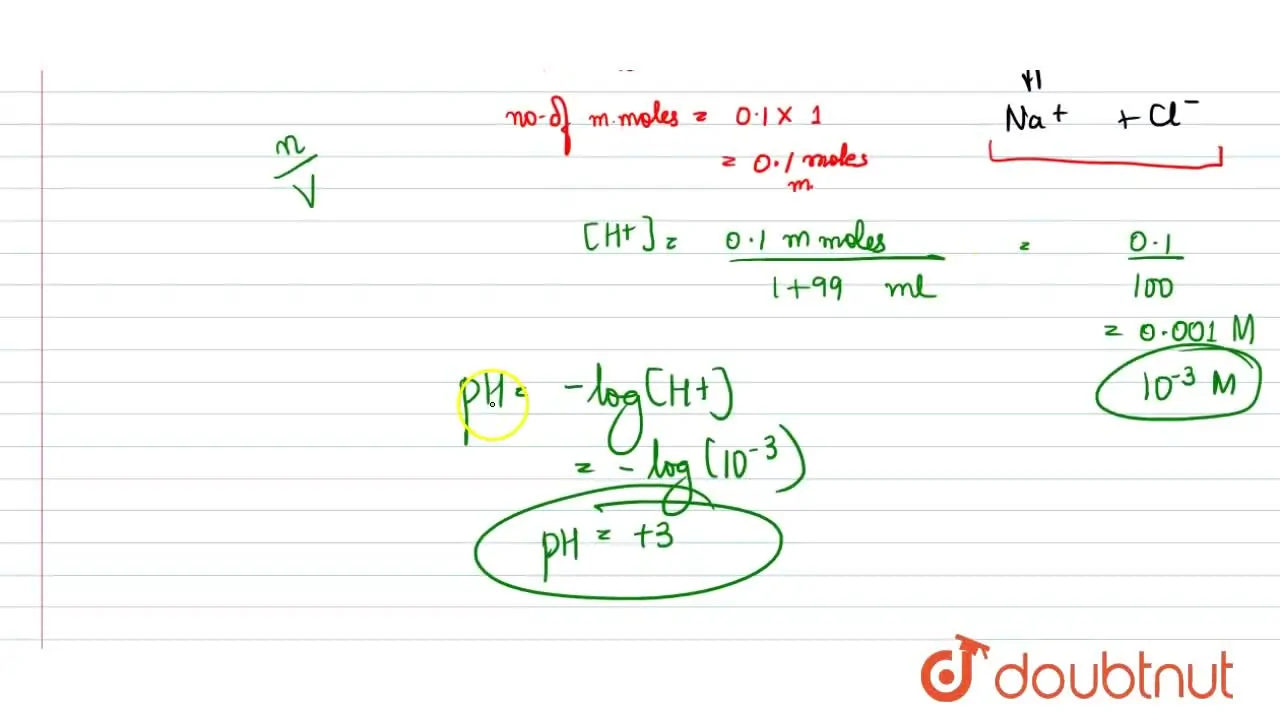 no-of m.moles = 0.1 x 1
= 0.1 moles
m
Na+ + Cl-
n
V
[H+] = 0.1 m moles = 0.1
1+99 ml 100
= 0.001 M
10-3 M
pH = -log[H+]
= -log(10-3)
pH = +3
doubtnut